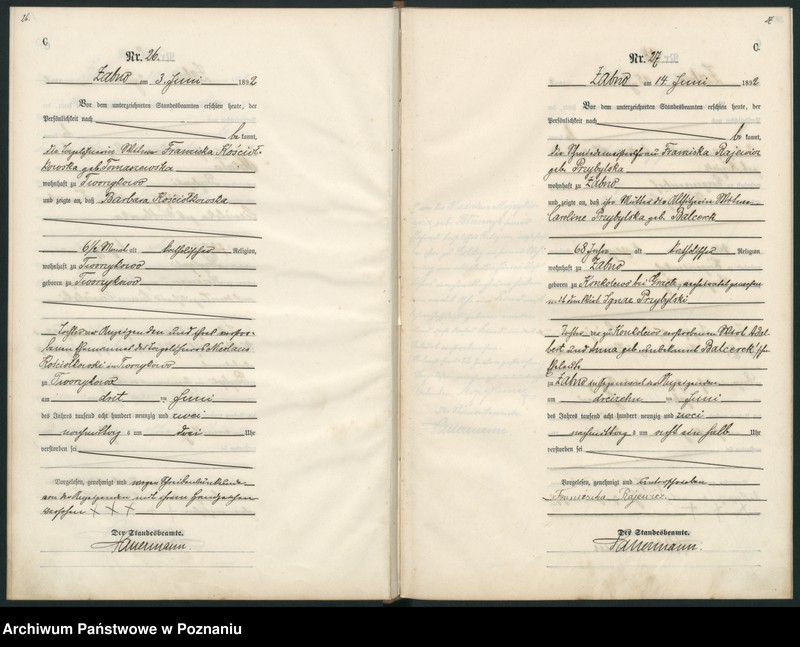 26.
C.
Nr. 26.
Żabno am 3. Juni 1892
Vor dem unterzeichneten Standesbeamten erschien heute, der
Persönlichkeit nach
be kannt,
die Wittwe Franciska Kosciol-
kowska geb. Tomaszewska
wohnhaft zu
und zeigte an, daß Barbara Kosciolkowska
6½ Monat alt katholischer Religion,
wohnhaft zu
geboren zu
Tochter der Anzeigenden und ihres verstor-
benen Ehemannes des Nicolaus
Kosciolkowski in
zu
am drei ten Juni
des Jahres tausend acht hundert neunzig und zwei
nachmittag s um drei Uhr
verstorben sei
Vorgelesen, genehmigt und wegen Schreibensunkunde
von der Anzeigenden mit ihrem Handzeichen
versehen + + +
Der Standesbeamte.
Hauermann.
C.
Nr. 27
Żabno am 14 Juni 1892
Vor dem unterzeichneten Standesbeamten erschien heute, der
Persönlichkeit nach
be kannt,
die Franciska Rajewicz
geb. Przybylska
wohnhaft zu Żabno
und zeigte an, daß ihre Mutter die Wittwe
Caroline Przybylska geb. Balcerek
68 Jahre alt katholischer Religion
wohnhaft zu Żabno
geboren zu Konkolewo bei Graetz, verheirathet gewesen
mit dem Wirth Ignac Przybylski
Tochter der zu Konkolewo verstorbenen Wirth
und Anna geb. unbekannt Balcerek'schen
Eheleute
zu Żabno in Gegenwart der Anzeigenden
am dreizehn ten Juni
des Jahres tausend acht hundert neunzig und zwei
nachmittag s um acht ein halb Uhr
verstorben sei
Vorgelesen, genehmigt und unterschrieben
Franciszka Rajewicz
Der Standesbeamte.
Hauermann.
Archiwum Państwowe w Poznaniu